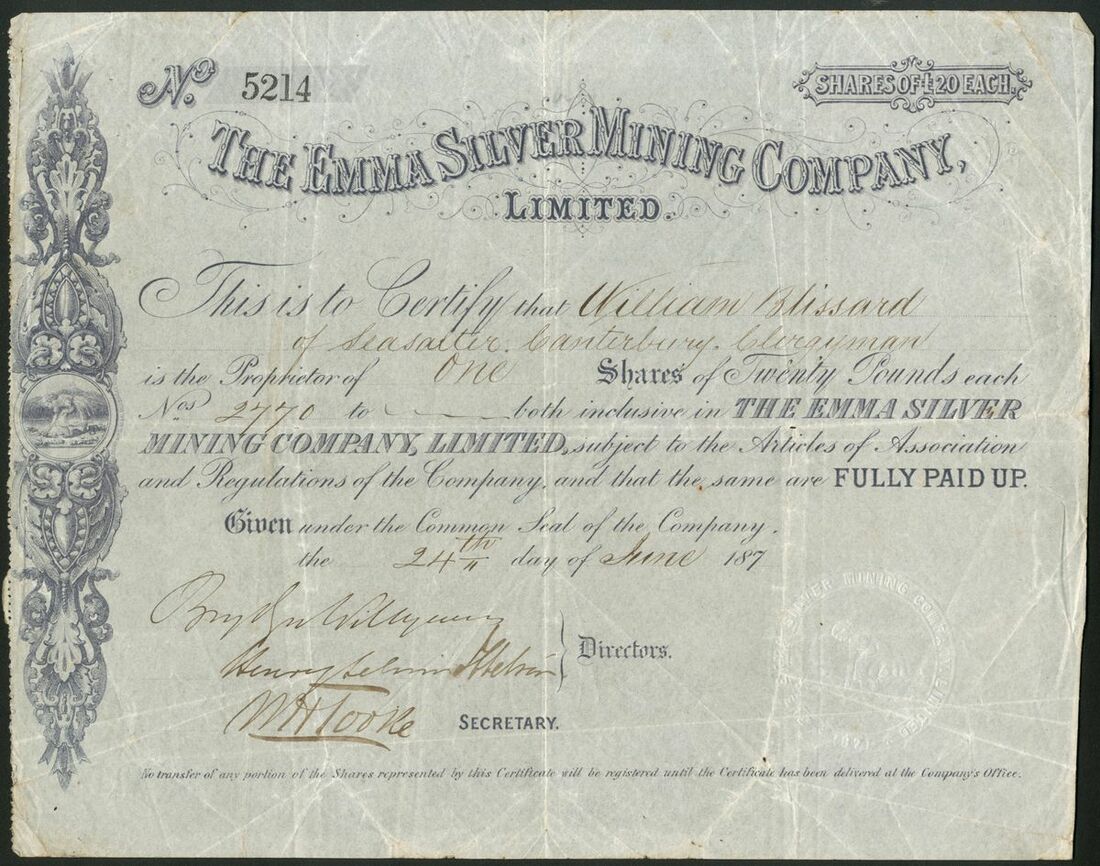 No. 5214
SHARES OF £20 EACH.
THE EMMA SILVER MINING COMPANY,
LIMITED.
This is to Certify that William Blissard
of Seasalter. Canterbury. Clergyman
is the Proprietor of One Shares of Twenty Pounds each
Nos 2770 to both inclusive in THE EMMA SILVER
MINING COMPANY, LIMITED, subject to the Articles of Association
and Regulations of the Company, and that the same are FULLY PAID UP.
Given under the Common Seal of the Company.
the 24th day of June 187
Directors.
Henry
W H Tooke SECRETARY.
SILVER MINING COMPANY LIMITED
No transfer of any portion of the Shares represented by this Certificate will be registered until the Certificate has been delivered at the Company's Office.